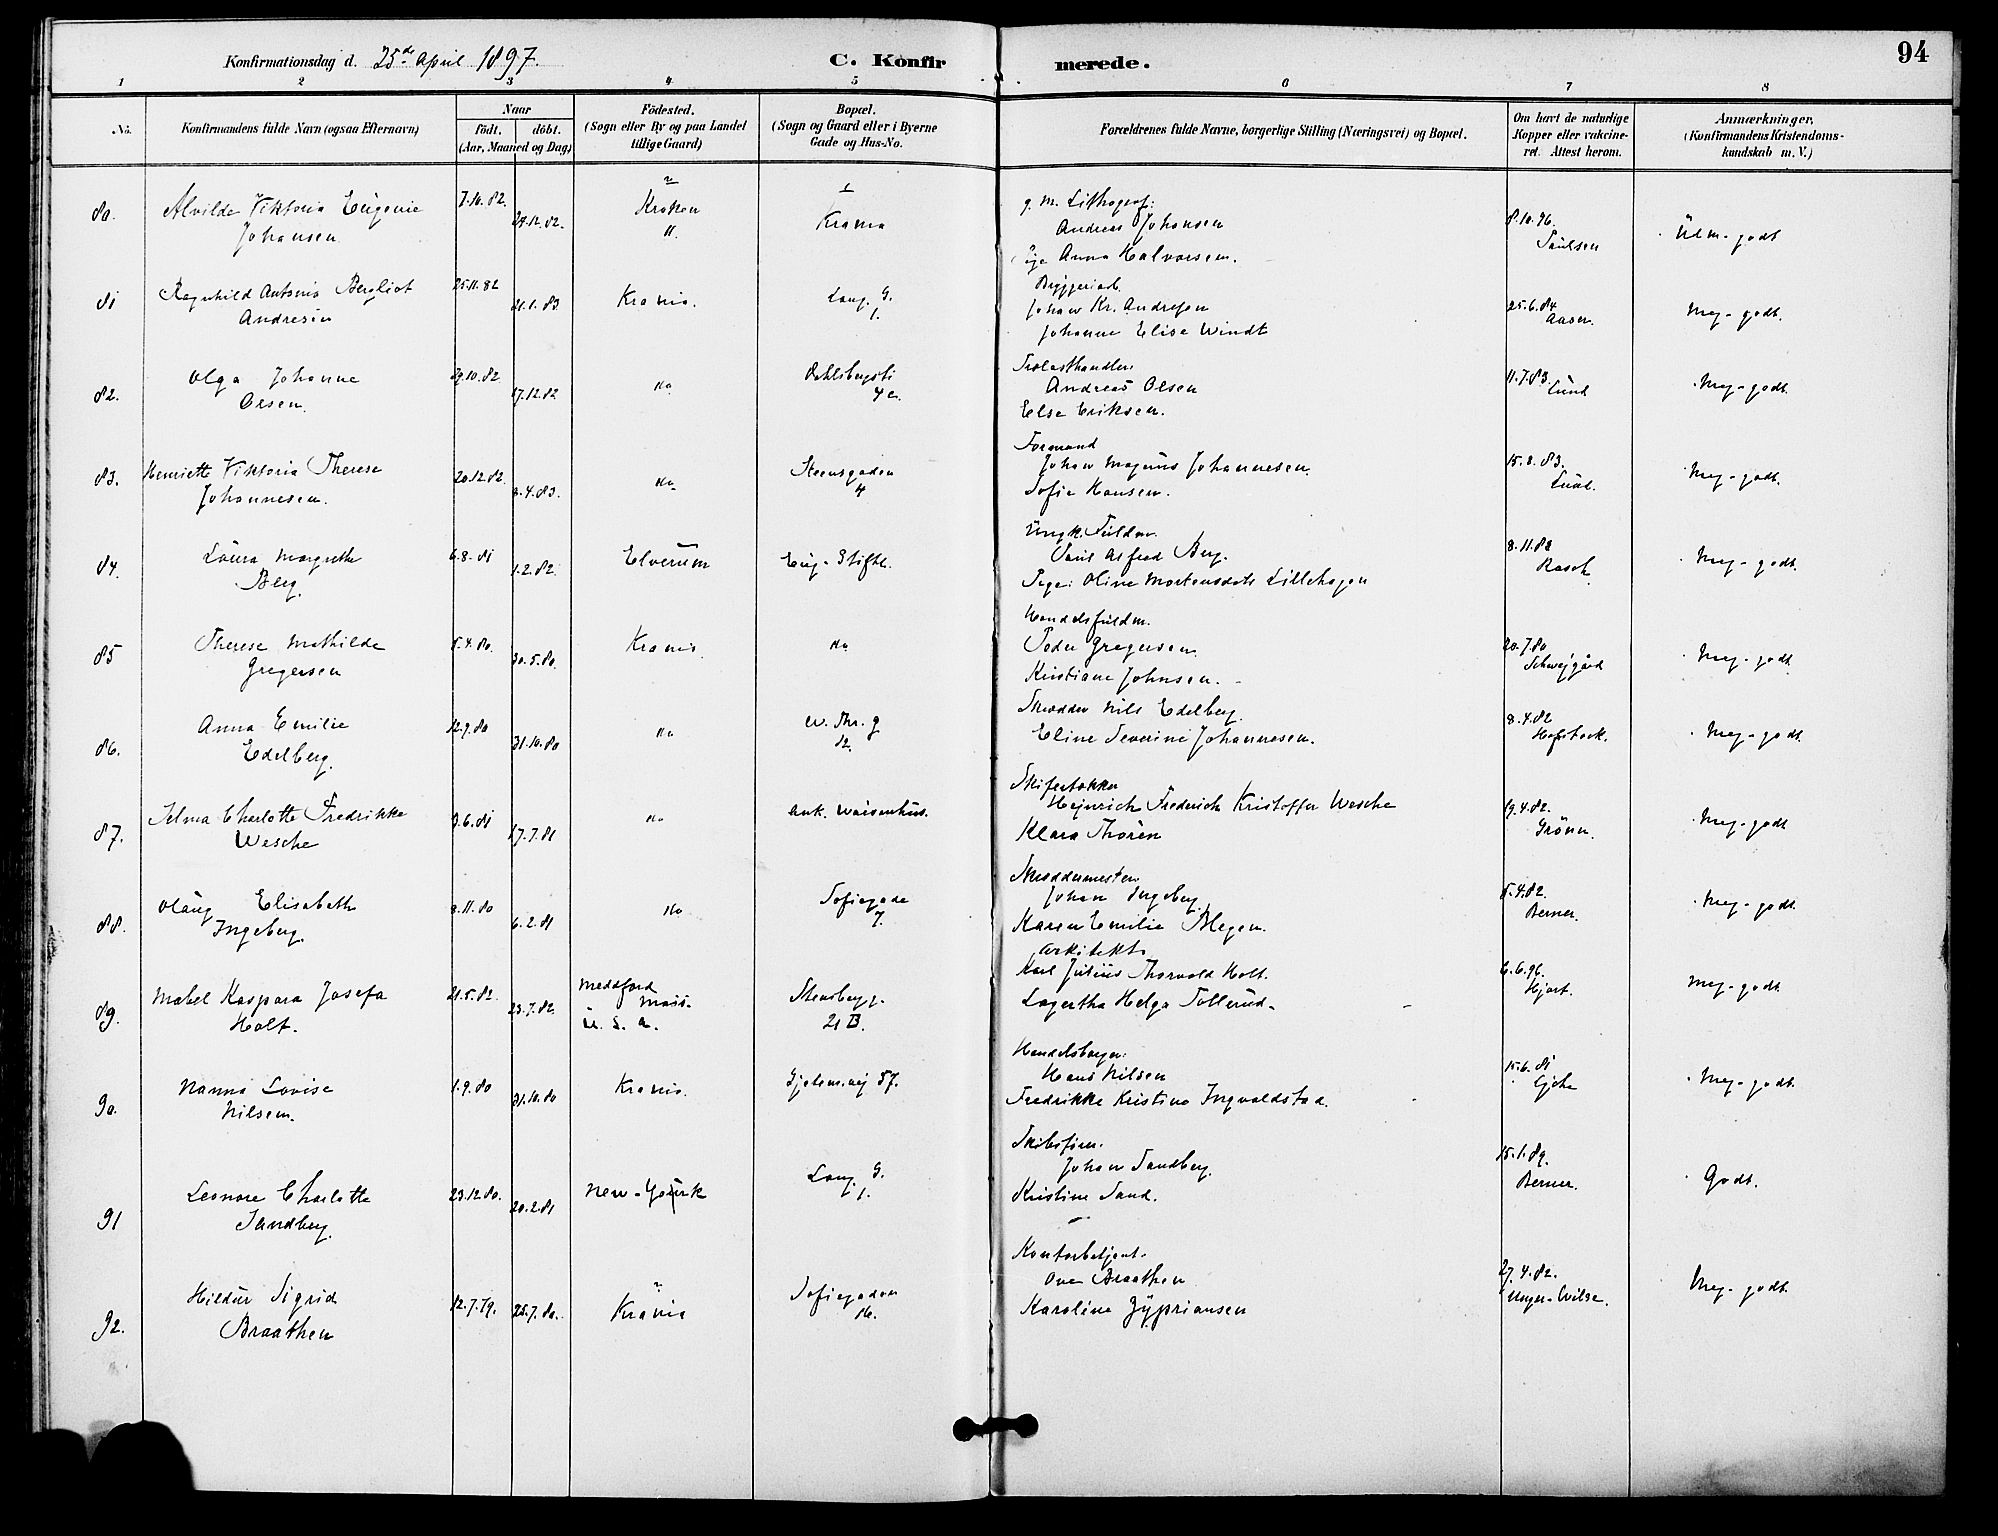 Konfirmationsdag d. 25de April 1897.
C. Konfirmerede.
94
1 2 3 4 5 6 7 8
No.
Konfirmandens fulde Navn (ogsaa Efternavn)
Naar
födt. döbt.
(Aar, Maaned og Dag)
Födested.
(Sogn eller By og paa Landet
tillige Gaard)
Bopæl.
(Sogn og Gaard eller i Byerne
Gade og Hus-No.
Forældrenes fulde Navne, borgerlige Stilling (Næringsvei) og Bopæl.
Om havt de naturlige
Kopper eller vakcine-
ret. Attest herom.
Anmærkninger,
(Konfirmandens Kristendoms-
kundskab m. V.)
80. Alvilde Viktoria Eugenie
Johansen
7.10.82.
Kroken
11.
Krania
g. m. Lithograf:
Andreas Johansen
Pige Anna Halvorsen.
8.10.96.
Paulsen
Ülm-godt
81 Ragnhild Antonia Bergliot
Andresen
25.11.82
21.1.83
Krania.
Lang. G.
1.
Byggeriarb.
Johan Kr. Andresen
Johanne Elise Windt
25.6.84
Aaser.
Meg-godt.
82. Olga Johanne
Olsen.
29.10.82
17.12.82
do
Dahlsbergsti
4c.
Trælasthandler
Andreas Olsen
Else Eriksen.
11.7.83.
Lund
Meg-godt.
83. Henriette Viktoria Therese
Johannesen.
20.12.82.
8.4.83.
do
Steensgaden
4
Formand
Johan Magnus Johannesen
Sofie Hansen.
15.8.83.
Lund.
Meg-godt.
84. Laura Margrethe
Berg.
6.8.81
1.2.82.
Elverum
Eug. Stiftl.
Ungk. Fuldm.
Paul Alfred Berg.
Pige: Oline Mortensdatt Lillehagen
8.11.82
Rasch
Meg-godt.
85 Therese Mathilde
Gregersen
5.4.80.
30.5.80.
Krania.
do
Handelsfuldm.
Peder Gregersen
Kristiane Johnsen.
20.7.80
Schweigård
Meg-godt.
86. Anna Emilie
Edelberg.
12.9.80
31.10.80
do
W. Thr. g
12.
Skrædder Nils Edelberg.
Eline Severine Johannesen.
8.4.82
Hofstock.
Meg-godt.
87. Selma Charlotte Fredrikke
Wesche
9.6.81
17.7.81
do
Ank. Waisenhus.
Skifertækker
Hejnrich Frederich Kristoffer Wesche
Klara Thorén
19.4.82.
Grönn.
Meg-godt
88. Olaug Elisabeth
Ingeberg.
8.11.80
6.2.81
do
Sofiegade
7.
Skræddermester
Johan Ingeberg
Karen Emilie Blegen.
5.4.82.
Berner.
Meg-godt.
89. Mabel Kaspara Josefa
Holt.
21.5.82.
23.7.82.
Meddford
Mass.
U. S. A.
Stensbergg.
21 B.
Arkitekt
Karl Julius Thorvald Holt.
Lagertha Helga Tollerud.
6.6.96.
Hjort.
Meg-godt.
90. Nanna Lovise
Nilsen.
1.9.80
31.10.80
Krania.
Gjetemvej 57.
Handelsborger:
Hans Nilsen
Fredrikke Kristine Ingvaldstad.
15.6.81
Gjche
Meg-godt.
91 Leonore Charlotte
Sandberg.
23.12.80.
20.2.81
New-York
Lang. G.
1.
Skibsfører.
Johan Sandberg.
Kristine Sand.
15.1.89.
Berner.
Godt.
92. Hildur Sigrid
Braathen
12.7.79.
25.7.80.
Krania
Sofiegaden
16.
Kontorbetjent.
Ove Braathen
Karoline Zypriansen
27.4.82.
Meyer-Wilse.
Meg-godt.